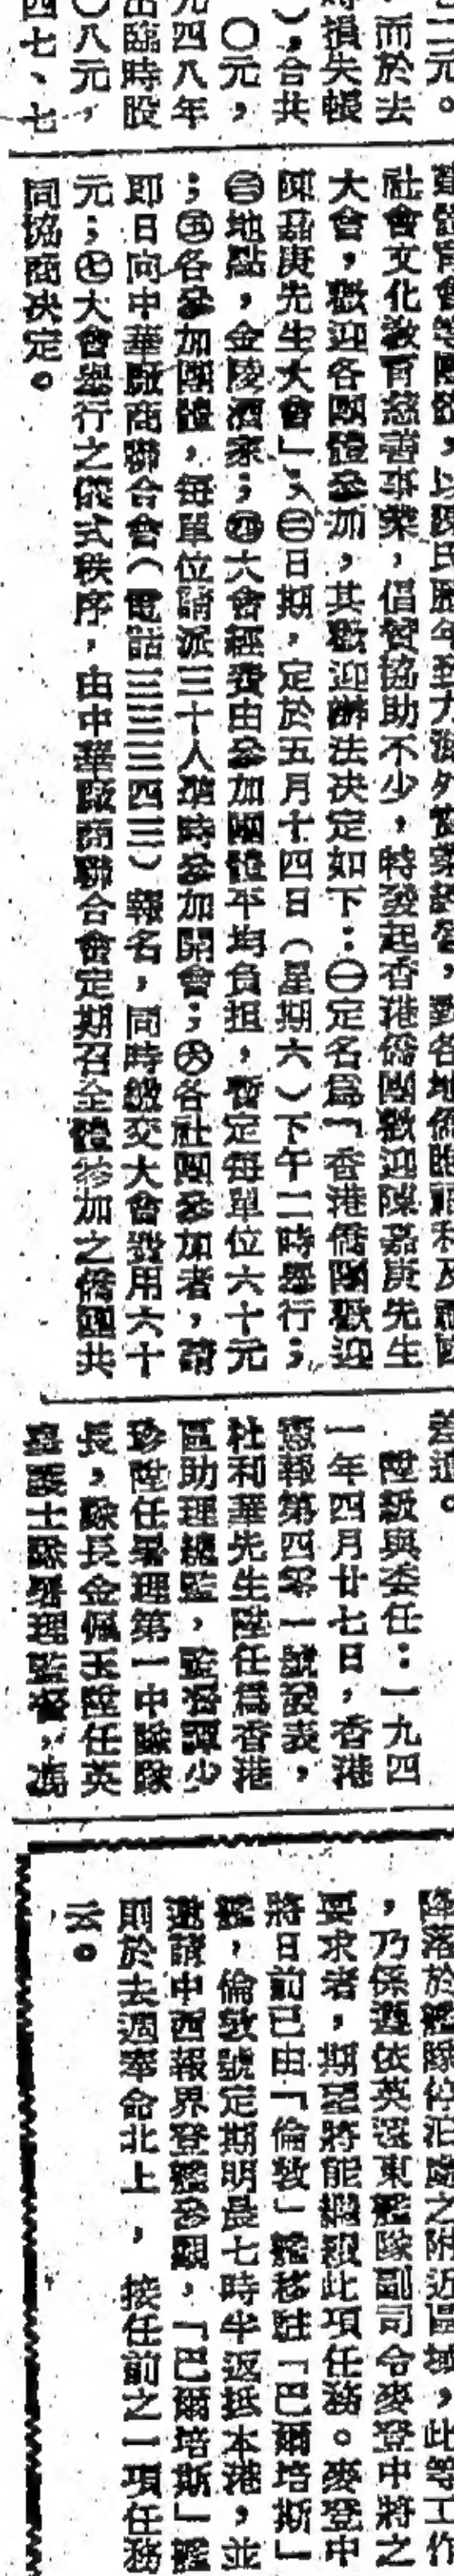 二元。
而於去
時損失賬
），合共
〇元，
元四八年
出臨時股
〇八元，
四七、七
社會文化敎育慈善事業，倡贊協助不少，特發起香港僑團歡迎陳嘉庚先生
大會，歡迎各團體參加，其歡迎辦法决定如下：㊀定名爲「香港僑團歡迎
陳嘉庚先生大會」、㊁日期，定於五月十四日（星期六）下午二時舉行；
㊂地點，金陵酒家；㊃大會經費由參加團體平均負担，暫定每單位六十元
；㊄各參加團體，每單位請派三十人準時參加開會；㊅各社團參加者，請
即日向中華廠商聯合會（電話三三三四三）報名，同時繳交大會費用六十
元；㊆大會舉行之儀式秩序，由中華廠商聯合會定期召全體參加之僑團共
同協商决定。
差遣。
陞級與委任：一九四
一年四月廿七日，香港
憲報第四零一號發表，
杜利華先生陞任爲香港
區助理總監，監督譚少
珍陞任署理第一中隊隊
長，隊長金佩玉陞任英
護士隊署理監督，馮
降落於艦隊停泊處之附近區域，此等工作
，乃係遵依英遠東艦隊副司令麥登中將之
要求者，期望將能繼續此項任務。麥登中
將日前已由「倫敦」艦移駐「巴爾培斯」
艦，倫敦號定期明晨七時半返抵本港，並
邀請中西報界登艦參觀，「巴爾培斯」艦
則於去週奉命北上，接任前之一項任務
云。